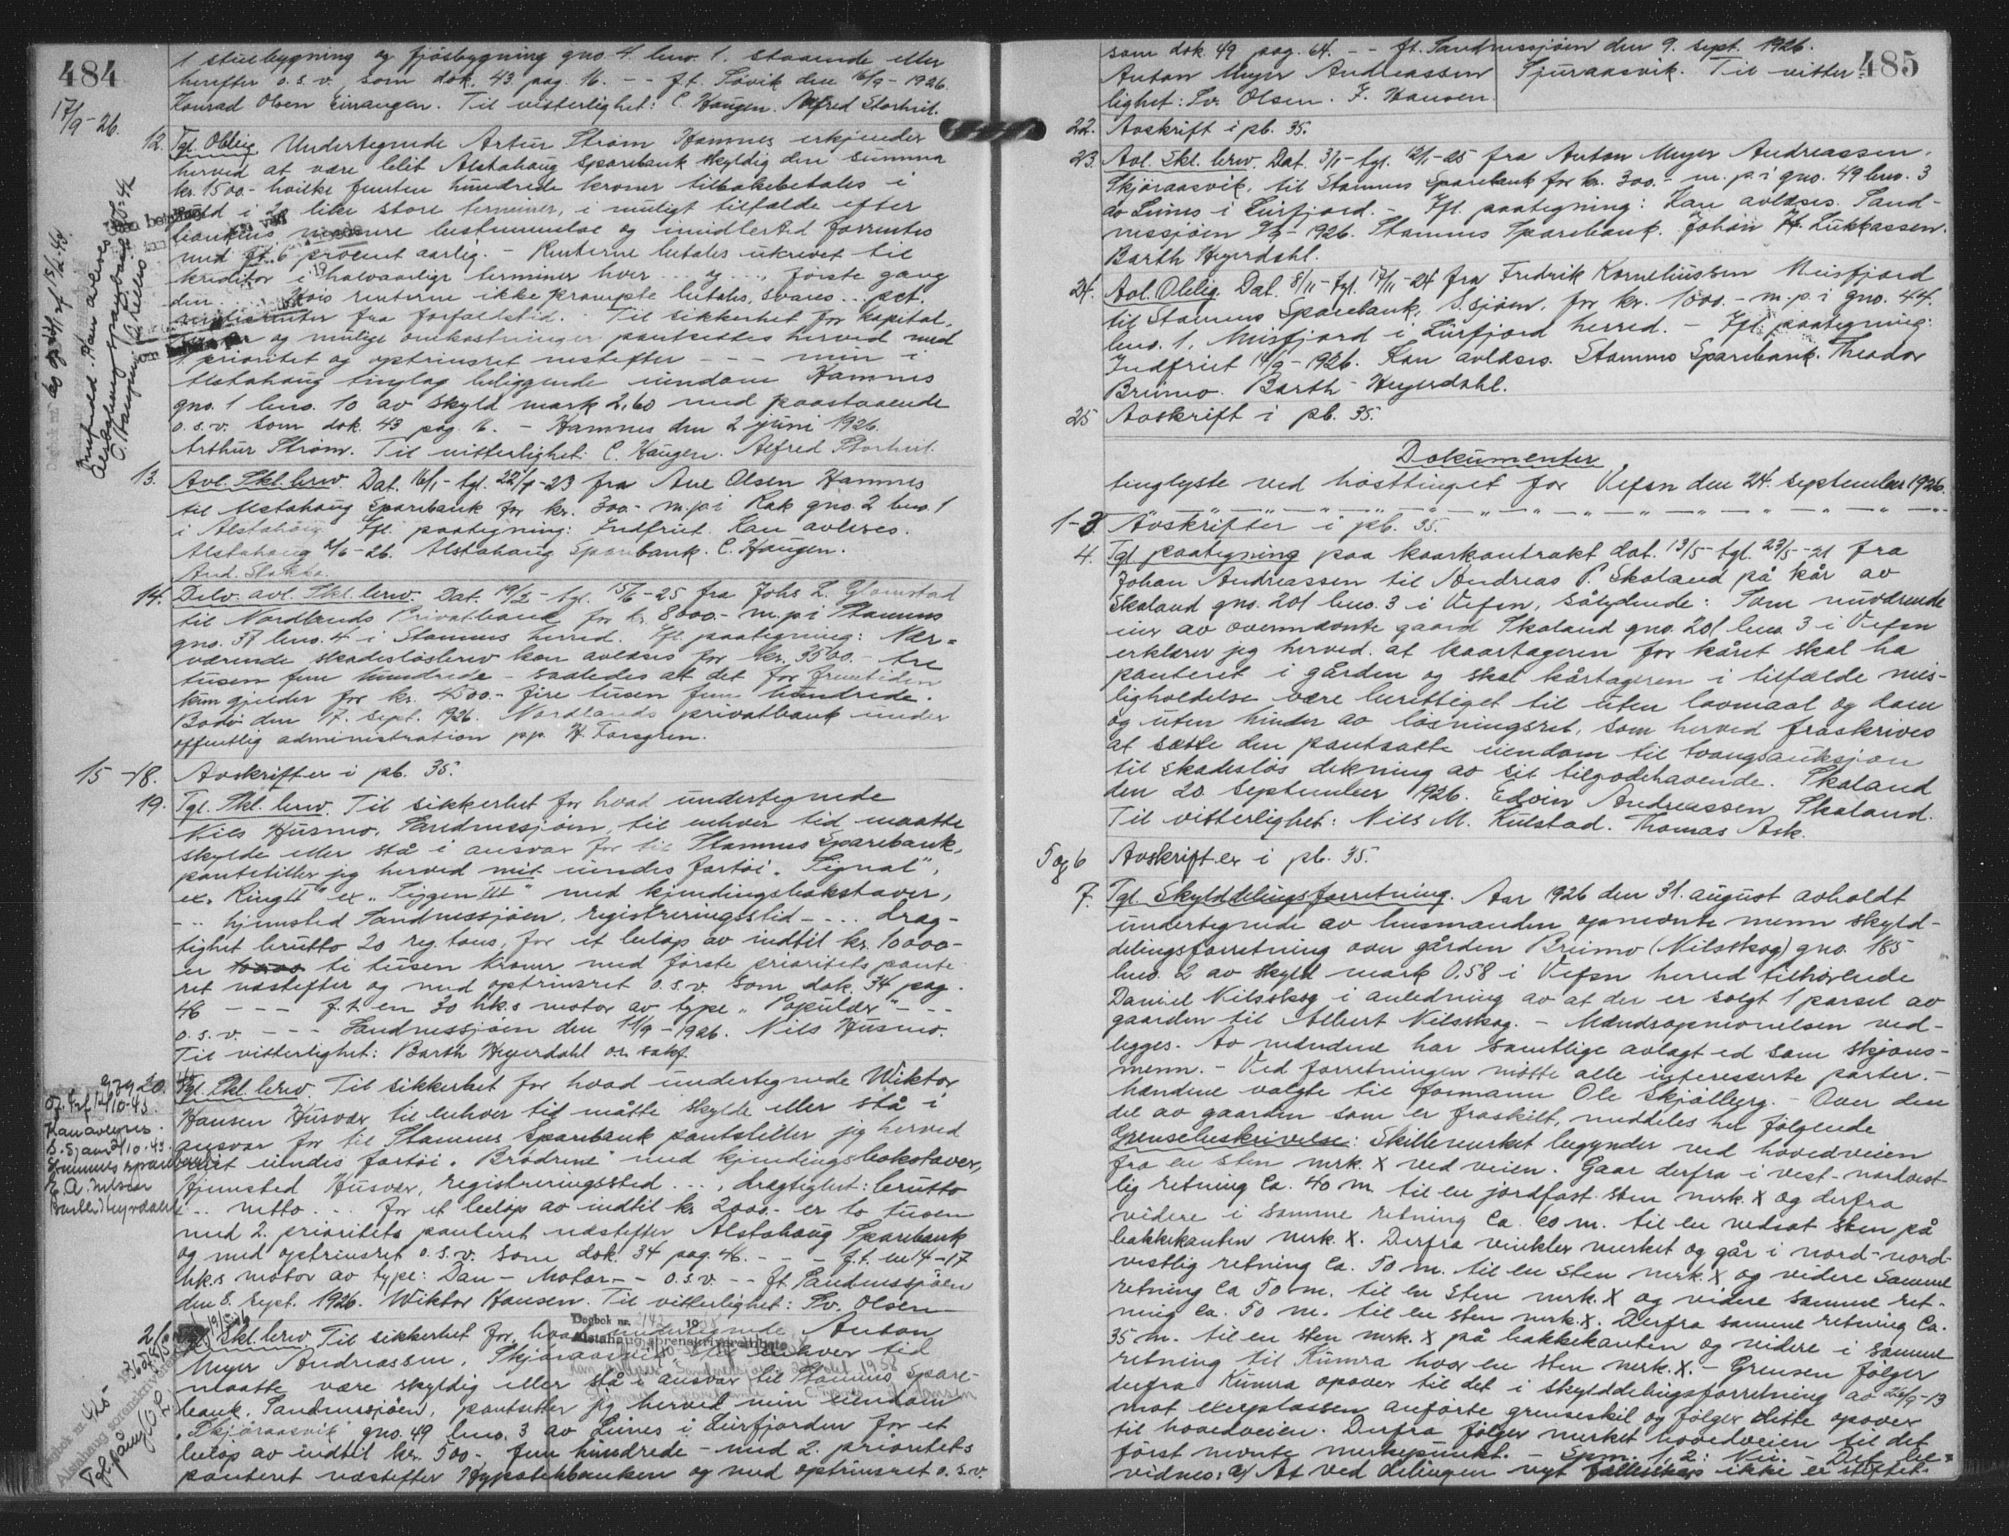 484
17/9-26.
1 stuebygning og fjøsbygning gno. 4. bno. 1. staaende eller
herefter o.s.v. som dok. 43 pag. 16. - - f.t. Søvik den 16/9-1926.
Konrad Olsen Einangen. Til vitterlighet: C. Haugen. Alfred Storhei.
12. Tgl. Oblig. Undertegnede Artur Strøm Hamnes erkjender
herved at være blit Alstahaug Sparebank skyldig den summa
kr. 1500.- hvilke femten hundrede kroner tilbakebetales i
guld i 20 like store terminer, i muligt tilfælde efter
bankens nærmere bestemmelse og imidlertid forrentes
med f.t. 6 procent aarlig. - Renterne betales ukrævet til
kreditor i halvaarlige terminer hver ... og ..., første gang
den ... Hvis renterne ikke prompte betales, svares ... pct.
fra forfaldstid. Til sikkerhet for kapital,
og mulige omkostninger pantsettes herved med
1 prioritet og optrinsret nestefter - - - min i
Alstahaug tinglag beliggende eiendom Hamnes
gno. 1 bno. 10 av skyld mark 2,60 med paastaaende
o.s.v. som dok. 43 pag. 16. - Hamnes den 2 juni 1926.
Arthur Strøm. Til vitterlighet: C. Haugen. Alfred Storhei.
13. Avl. Skl. brev. Dat. 16/1- tgl. 22/9-23 fra Ane Olsen Hamnes
til Alstahaug Sparebank for kr. 300.- m.p. i Rak gno. 2 bno. 1
i Alstahaug. Ifl. paategning: Indfriet. Kan avleses.
Alstahaug 2/6-26. Alstahaug Sparebank. C. Haugen.
And. Slokka.
14. Delv. avl. Skl. brev. Dat. 19/2- tgl. 15/6-25 fra Johs L. Glomstad
til Nordlands Privatbank for kr. 8000.- m.p. i Stamnes
gno. 37 bno. 4 i Stamnes herred. Ifl. paategning: Nær-
værende skadesløsbrev kan avleses for kr. 3500.- tre
tusen fem hundrede - saaledes at det for fremtiden
kun gjelder for kr. 4500.- fire tusen fem hundrede.
Bodø den 17. sept. 1926. Nordlands privatbank under
offentlig administration pp. H. Forsgren.
15-18. Avskrifter i pb. 35.
19. Tgl. Skl. brev. Til sikkerhet for hvad undertegnede
Nils Husmo, Sandnessjøen, til enhver tid maatte
skylde eller stå i ansvar for til Stamnes Sparebank,
pantstiller jeg herved mit eiendes fartøi „Signal",
ex. „Ring II" ex „Viggen III" med kjendingsbokstaver,
- .. hjemsted Sandnessjøen, registreringssted - ... dræg-
tighet brutto 20 reg. tons, for et beløp av indtil kr. 10000.-
er ti tusen kroner med første prioritets pante-
ret næstefter og med optrinsret o.s.v. som dok. 34 pag.
46 - - - f.t. en 30 hk.s motor av type „Populær" - - -
o.s.v. - - - Sandnessjøen den 11/9-1926. Nils Husmo.
Til vitterlighet: Barth Heyerdahl o.r. sakf.
20. Tgl. Skl. brev. Til sikkerhet for hvad undertegnede Wiktor
Hansen Husvær til enhver tid måtte skylde eller stå i
ansvar for til Stamnes Sparebank pantstiller jeg herved
mit eiendes fartøi „Brødrene" med kjendingsbokstaver,
Hjemsted Husvær, registreringssted ..., drægtighet: brutto
... netto ... for et beløp av indtil kr. 2000.- er to tusen
med 2. prioritets panteret næstefter Alstahaug Sparebank
og med optrinsret o.s.v. som dok. 34 pag. 46. - - - f.t. en 14-17
hk.s motor av type: Dan - Motor - - o.s.v. - - f.t. Sandnessjøen
den 8. sept. 1926. Wiktor Hansen. Til vitterlighet: Sv. Olsen
21. Tgl. Skl. brev. Til sikkerhet for hvad undertegnede Anton
Meyer Andreassen, Skjøraasvik til enhver tid
maatte være skyldig eller stå i ansvar til Stamnes Spare-
bank, Sandnessjøen, pantsetter jeg herved min eiendom
„Skjøraasvik" gno. 49 bno. 3 av Leines i Leirfjorden for et
beløp av indtil kr. 500.- fem hundrede - med 2. prioritets
panteret næstefter Hypotekbanken og med optrinsret o.s.v.
485
som dok. 49 pag. 64. - - f.t. Sandnessjøen den 9. sept. 1926.
Anton Meyer Andreassen Sjuraasvik. Til vitter-
lighet: Sv. Olsen. F. Hansen.
22. Avskrift i pb. 35.
23. Avl. Skl. brev. Dat. 3/1- tgl. 12/1-25 fra Anton Meyer Andreassen,
Skjøraasvik, til Stamnes Sparebank for kr. 300.- m.p. i gno. 49 bno. 3
av Leines i Leirfjord. - Ifl. paategning: Kan avleses. Sand-
nessjøen 9/9-1926. Stamnes Sparebank. Johan H. Lukkassen.
Barth Heyerdahl.
24. Avl. Oblig. Dat. 8/11- tgl. 17/11-24 fra Fredrik Korneliussen Meisfjord
til Stamnes Sparebank, S.sjøen, for kr. 1000.- m.p. i gno. 44.
bno. 1, Meisfjord i Leirfjord herred. - Ifl. paategning:
Indfriet 14/9-1926. Kan avleses. Stamnes Sparebank. Theodor
Breimo. Barth Heyerdahl.
25 Avskrift i pb. 35.
Dokumenter
tinglyste ved høsttinget for Vefsn den 24. september 1926.
1-3 Avskrifter i pb. 35.
4. Tgl paategning paa kaarkontrakt dat. 13/5- tgl. 23/5-21 fra
Johan Andreassen til Andreas P. Skaland på kår av
Skaland gno. 201 bno. 3 i Vefsn, sålydende: Som nuværende
eier av ovennævnte gaard Skaland gno. 201 bno. 3 i Vefsn
erklærer jeg herved at kaartageren for kåret skal ha
panteret i gården og skal kårtageren i tilfælde mis-
ligholdelse være berettiget til uten lovmaal og dom
og uten hinder av løsningsret, som herved fraskrives
at sætte den pantsatte eiendom til tvangsauksjon
til skadesløs dekning av sit tilgodehavende. Skaland
den 20 september 1926. Edvin Andreassen Skaland.
Til vitterlighet: Nils M. Kulstad. Thomas Ask.
5 og 6 Avskrifter i pb. 35.
7. Tgl. Skylddelingsforretning. Aar 1926 den 31. august avholdt
undertegnede av lensmanden opnevnte menn skyld-
delingsforretning over gården Breimo (Nilsskog) gno. 185
bno. 2 av skyld mark 0.58 i Vefsn herred tilhørende
Daniel Nilsskog i anledning av at der er solgt 1 parsel av
gaarden til Albert Nilsskog. - Mandsopnevnelsen ved-
legges. Av mændene har samtlige avlagt ed som skjøns-
menn. - Ved forretningen møtte alle interesserte parter. -
Mændene valgte til formann Ole Skjølberg. - Over den
del av gaarden som er fraskilt, meddeles her følgende
Grensebeskrivelse: Skillemerket begynder ved hovedveien
fra en sten merk. X ved veien. Gaar derfra i vest-nordvest-
lig retning ca. 40 m. til en jordfast sten merk. X og derfra
videre i samme retning ca. 60 m. til en nedsat sten på
bakkekanten merk. X. Derfra vinkler merket og går i nord-nord-
vestlig retning ca. 50 m. til en sten merk. X og videre samme
retning ca 50 m. til en sten merk. X og videre samme ret-
ning ca. 50 m. til en sten merk. X. Derfra samme retning ca.
35 m. til en sten merk. X på bakkekanten og videre i samme
retning til Kumra hvor en sten merk. X. - Grensen følger
derfra Kumra opover til det i skylddelingsforretning av 26/9-13
mot exerplassen anførte grenseskil og følger dette opover
til hovedveien. Derfra følger merket hovedveien til det
først nevnte merkepunkt. - Spm. 1. 2: Nei. - Det be-
vidnes: a) At ved delingen nyt fellesskap ikke er stiftet.